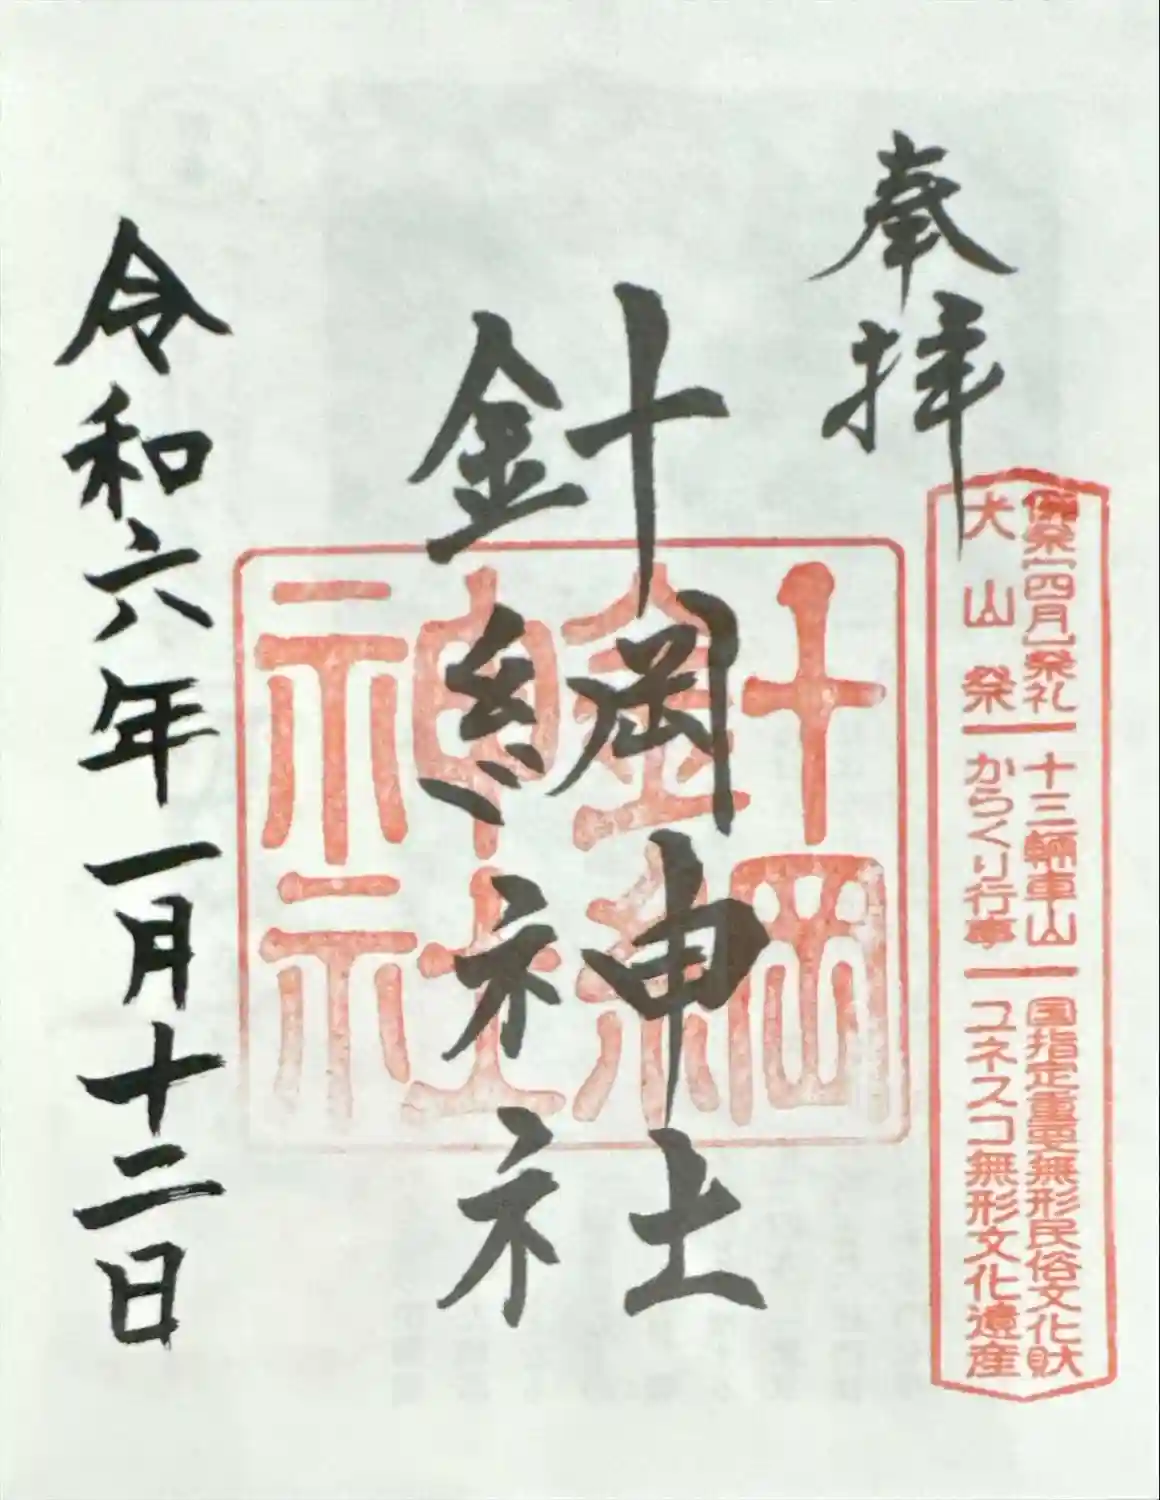 奉拝
例祭(四月)祭礼 十三輛車山 国指定重要無形民俗文化財
犬山祭 からくり行事 ユネスコ無形文化遺産
針綱神社
針綱神社
令和六年一月十二日